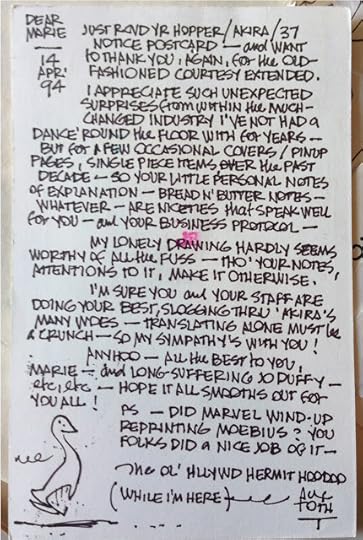 DEAR MARIE —
14 APR. 94
JUST RCVD YR HOPPER/AKIRA/37
NOTICE POSTCARD — and WANT
TO THANK YOU, AGAIN, FOR the OLD-
FASHIONED COURTESY EXTENDED.
I APPRECIATE SUCH UNEXPECTED
SURPRISES from WITHIN the MUCH-
CHANGED INDUSTRY I'VE NOT HAD A
DANCE 'ROUND the FLOOR WITH for YEARS —
BUT FOR A FEW OCCASIONAL COVERS / PINUP
PAGES, SINGLE PIECE ITEMS OVER the PAST
DECADE — SO YOUR LITTLE PERSONAL NOTES
of EXPLANATION — BREAD N' BUTTER NOTES —
WHATEVER — ARE NICETIES that SPEAK WELL
for YOU — and YOUR BUSINESS PROTOCOL —
MY LONELY DRAWING HARDLY SEEMS
WORTHY of ALL the FUSS — THO' YOUR NOTES,
ATTENTIONS TO IT, MAKE IT OTHERWISE.
I'M SURE YOU and YOUR STAFF ARE
DOING YOUR BEST, SLOGGING THRU 'AKIRA'S
MANY WOES — TRANSLATING ALONE MUST be
A CRUNCH — SO MY SYMPATHY'S WITH YOU!
ANYHOO — ALL the BEST to YOU,
MARIE — and LONG-SUFFERING JO DUFFY —
etc, etc — HOPE IT ALL SMOOTHS OUT FOR
YOU ALL!
PS — DID MARVEL WIND-UP
REPRINTING MOEBIUS? YOU
FOLKS DID A NICE JOB OF IT —
The OL' HLLYWD HERMIT HOODOO
(WHILE I'M HERE)
ALEX TOTH
me